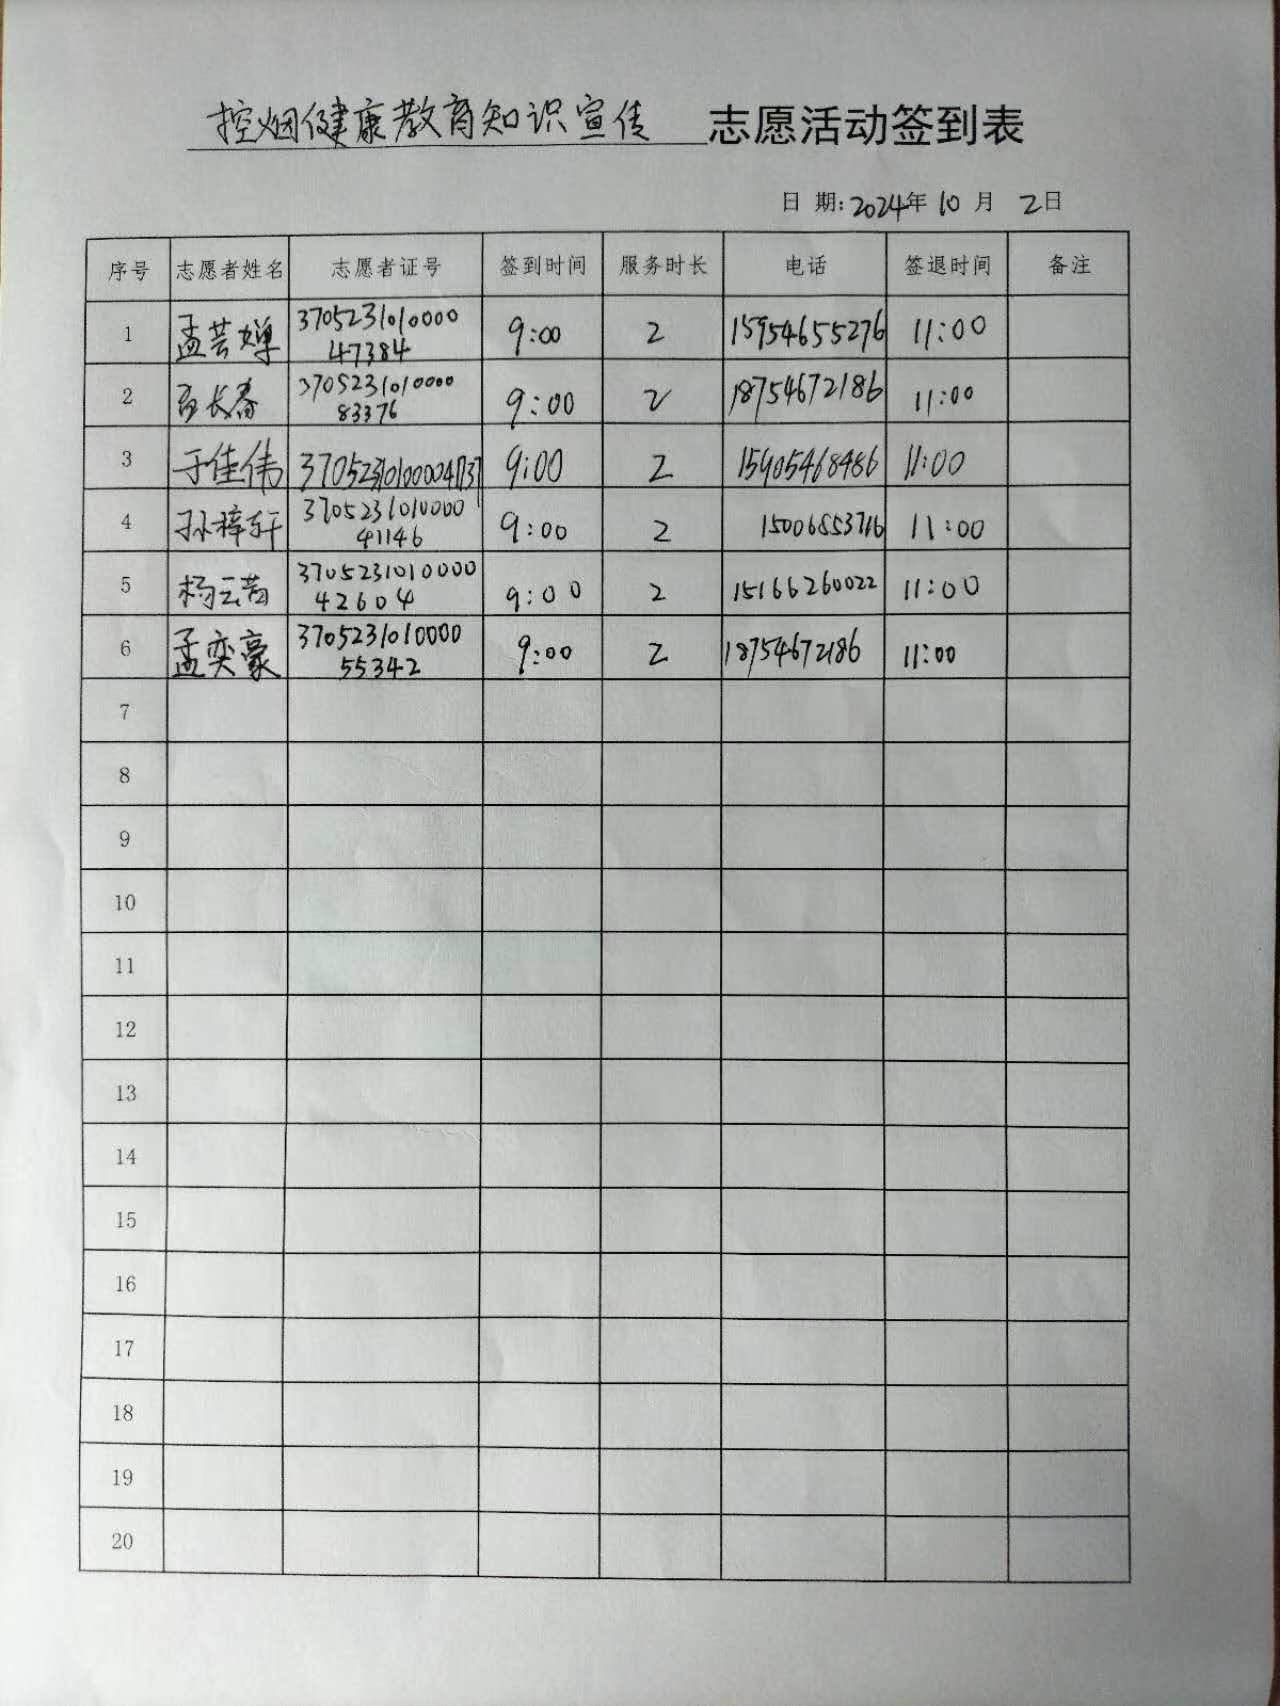 控烟健康教育知识宣传 志愿活动签到表
日 期: 2024年 10 月 2日
序号 志愿者姓名 志愿者证号 签到时间 服务时长 电话 签退时间 备注
1 孟芸婵 3705231010000 9:00 2 15954655276 11:00
47384
2 长春 3705231010000 9:00 2 18754672186 11:00
83376
3 于佳伟 9:00 2 15905468486 11:00
4 孙梓轩 3705231010000 9:00 2 15006853716 11:00
41146
5 杨云茜 3705231010000 9:00 2 15166260022 11:00
42604
6 孟奕豪 3705231010000 9:00 2 18754672186 11:00
55342
7
8
9
10
11
12
13
14
15
16
17
18
19
20